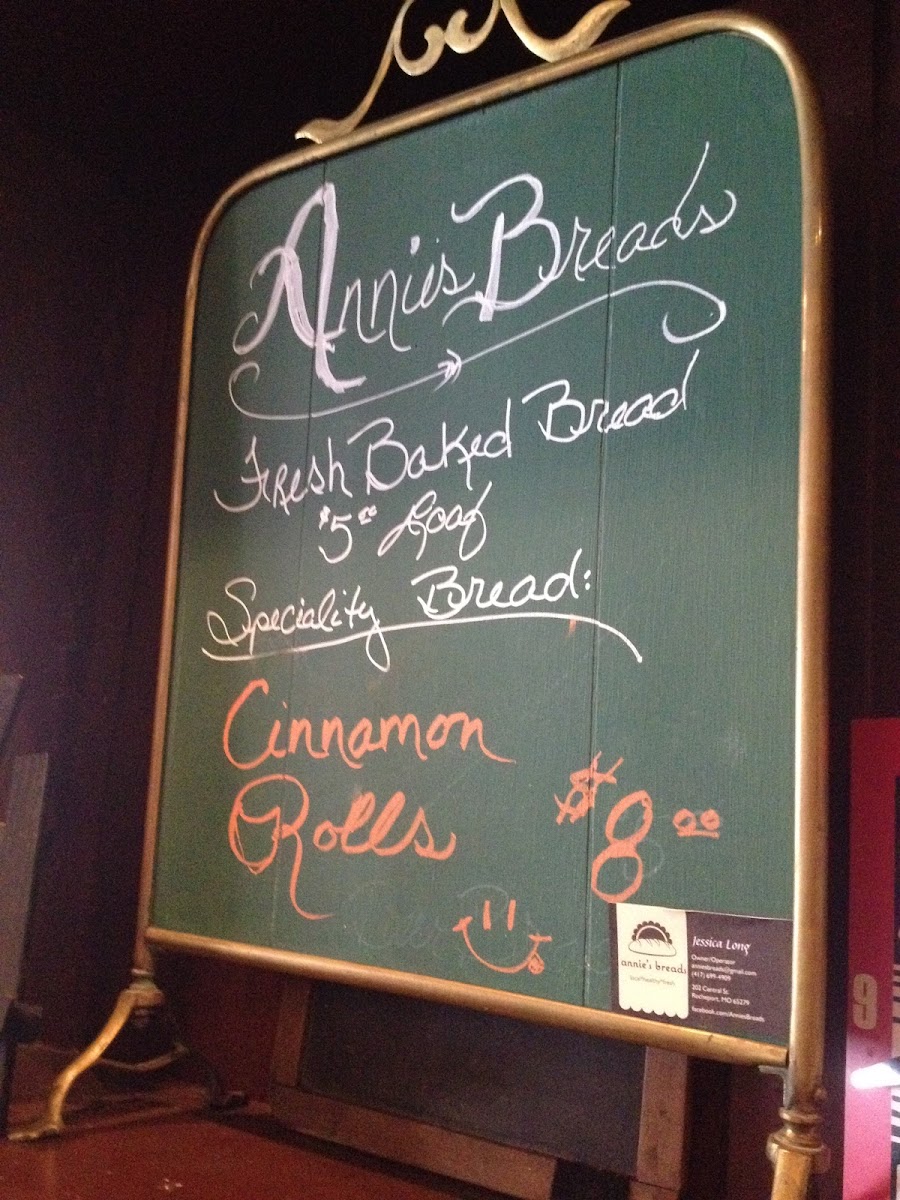 Annie's Breads
Fresh Baked Bread
$5.00 Loaf
Speciality Bread:
Cinnamon
Rolls $8.00
annie's breads
local*healthy*fresh
Jessica Long
Owner/Operator
anniesbreads@gmail.com
(417) 699-4909
202 Central St.
Rocheport, MO 65279
facebook.com/AnniesBreads
9